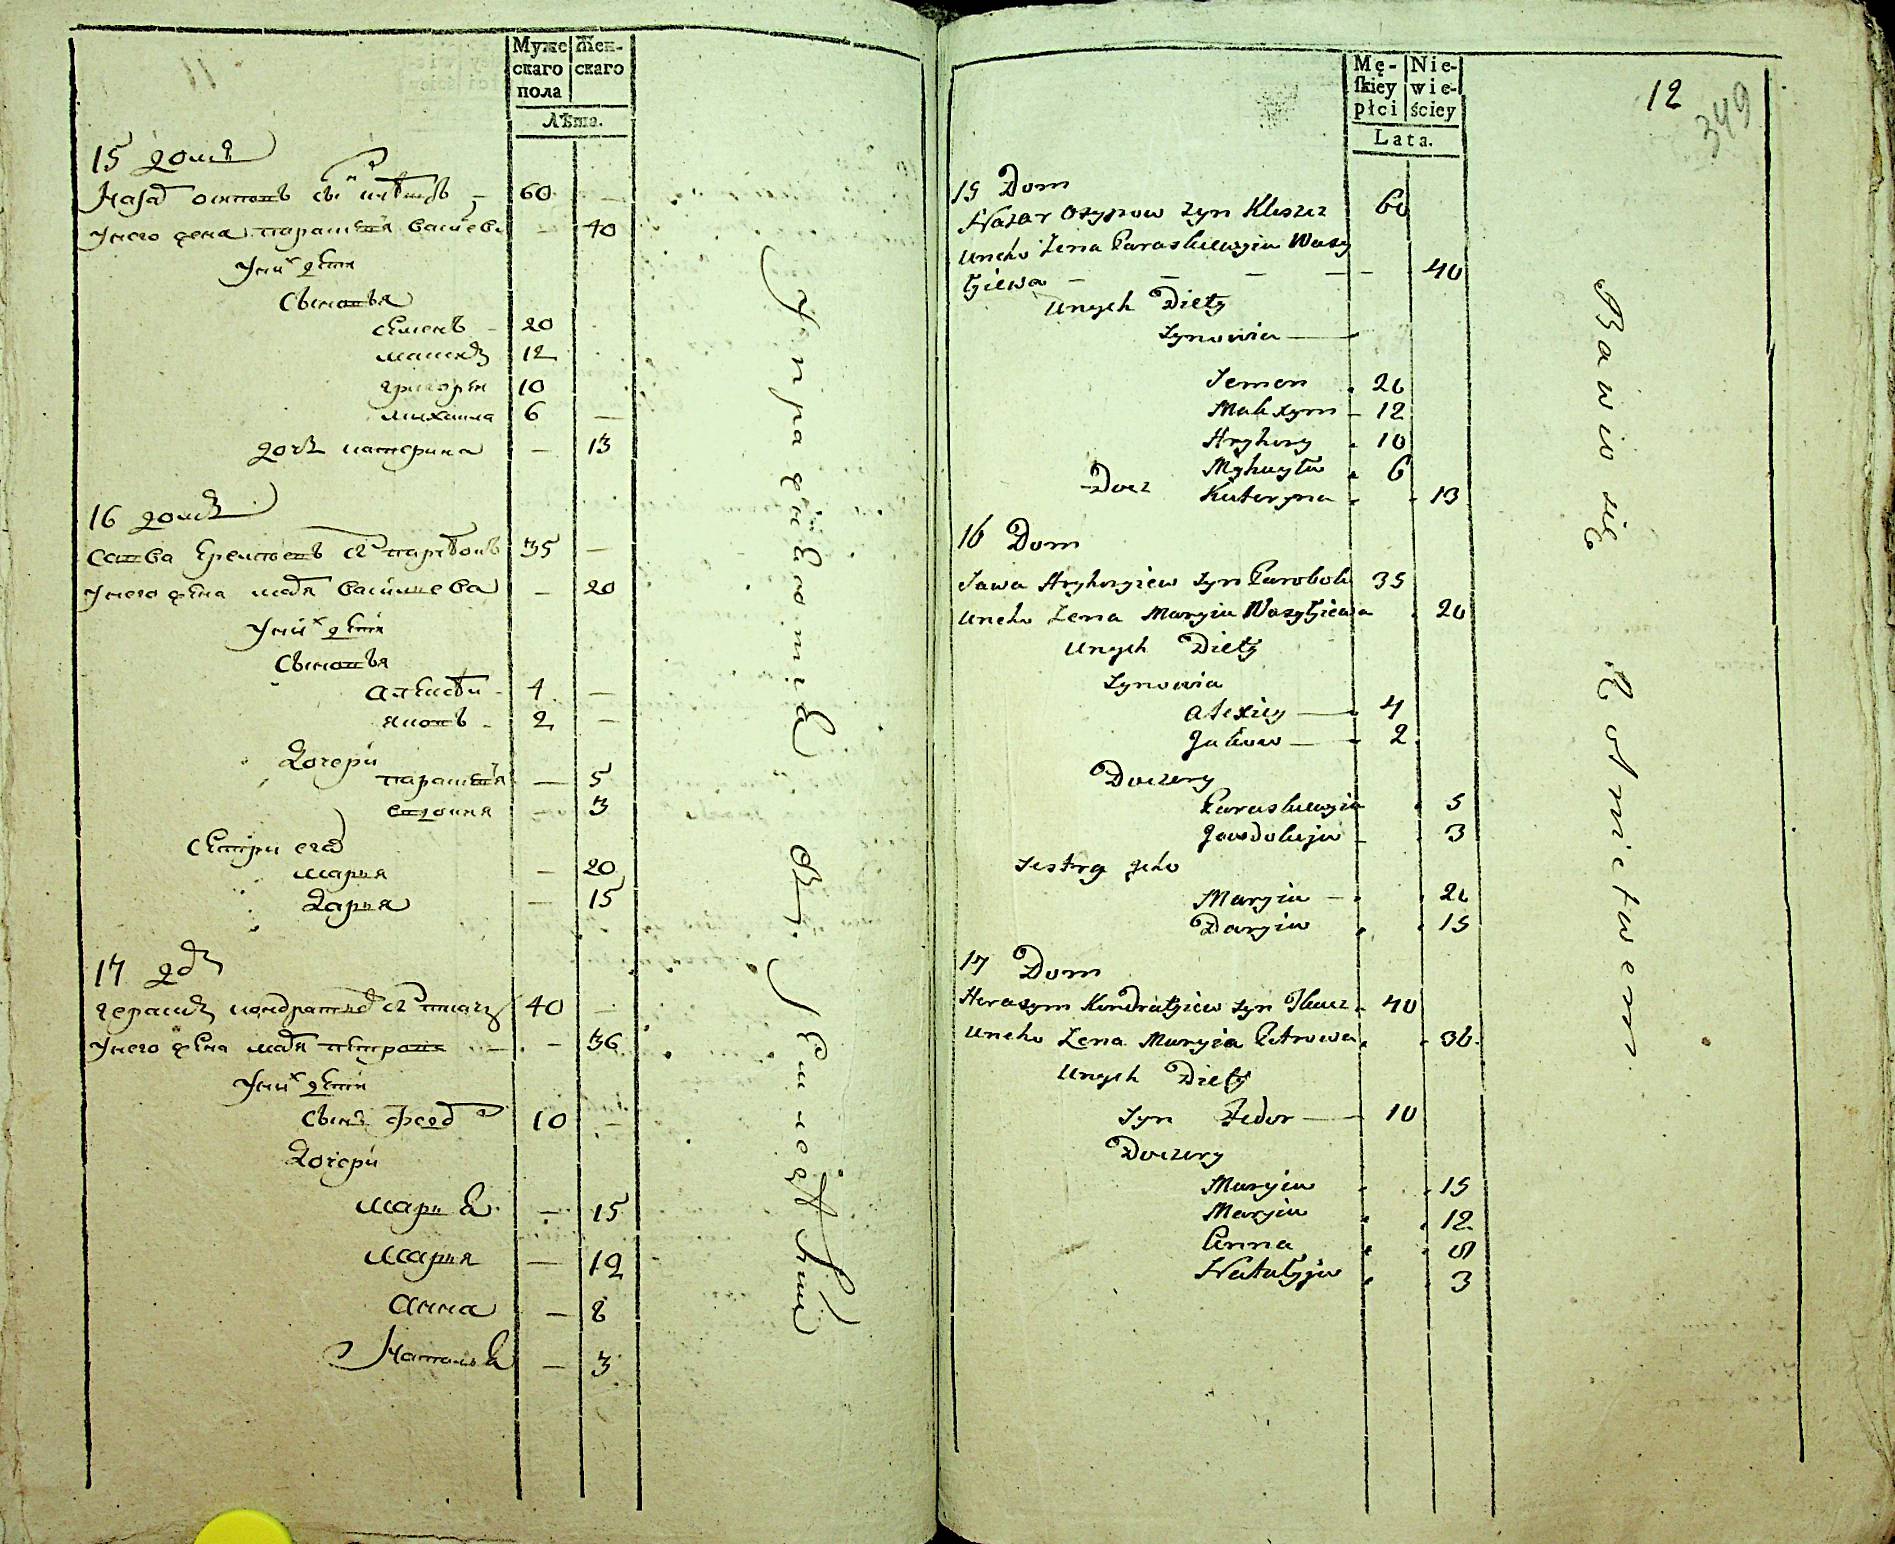 Муже
скаго
пола
Жен-
скаго
Лѣта.
15 домъ
Назаръ осиповъ сынъ 60 —
у него жена параскевия васильева — 40
у них дети
сыновья
семенъ — 20
максимъ 12
григорей 10
михаила 6 —
дочь катерина — 13
16 домъ
савва сынъ 35 —
у него жена марья васильева — 20
у них дети
сыновья
алексей — 4 —
яковъ — 2 —
дочери
параскевия — 5
евдокия — 3
сестры его
марья — 20
дарья — 15
17 домъ
герасимъ кондратьевъ сынъ ткачъ 40 —
у него жена марья петрова — 36
у них дети
сынъ федор 10 —
дочери
марья — 15
марья — 12
анна — 8
наталья — 3
упражняются земледелием
12
349
Mę-
ſkiey
płci
Nie-
wie-
ściey
Lata.
15 Dom
Nazar Osypow syn Kleszcz 60
uneho Zena Paraskiewyia Wasy
łyiewa — — — — 40
unych Diety
synowia —
Semen . 20
Maksym — 12
Hryhory . 10
Myhayło . 6
Docz Kateryna . . 13
16 Dom
Sawa Hryhoryiew syn Parobok 35
uneho Zena Maryia Wasyłyiewa . 20
unych Diety
synowia
Alexiey — 4
Jakow — 2
Doczery
Paraskiewyia . 5
Jawdokyja — . 3
sestry jeho
Maryia — . . 20
Daryia . . 15
17 Dom
Herasym Kondratyiew syn Tkacz . 40
uneho Zena Maryia Petrowa . . 36
unych Diety
syn Fedor — 10
Doczery
Maryia . . 15
Maryia . . 12
Anna . . 8
Natałyja . . 3
Bawio się Rolnictwem